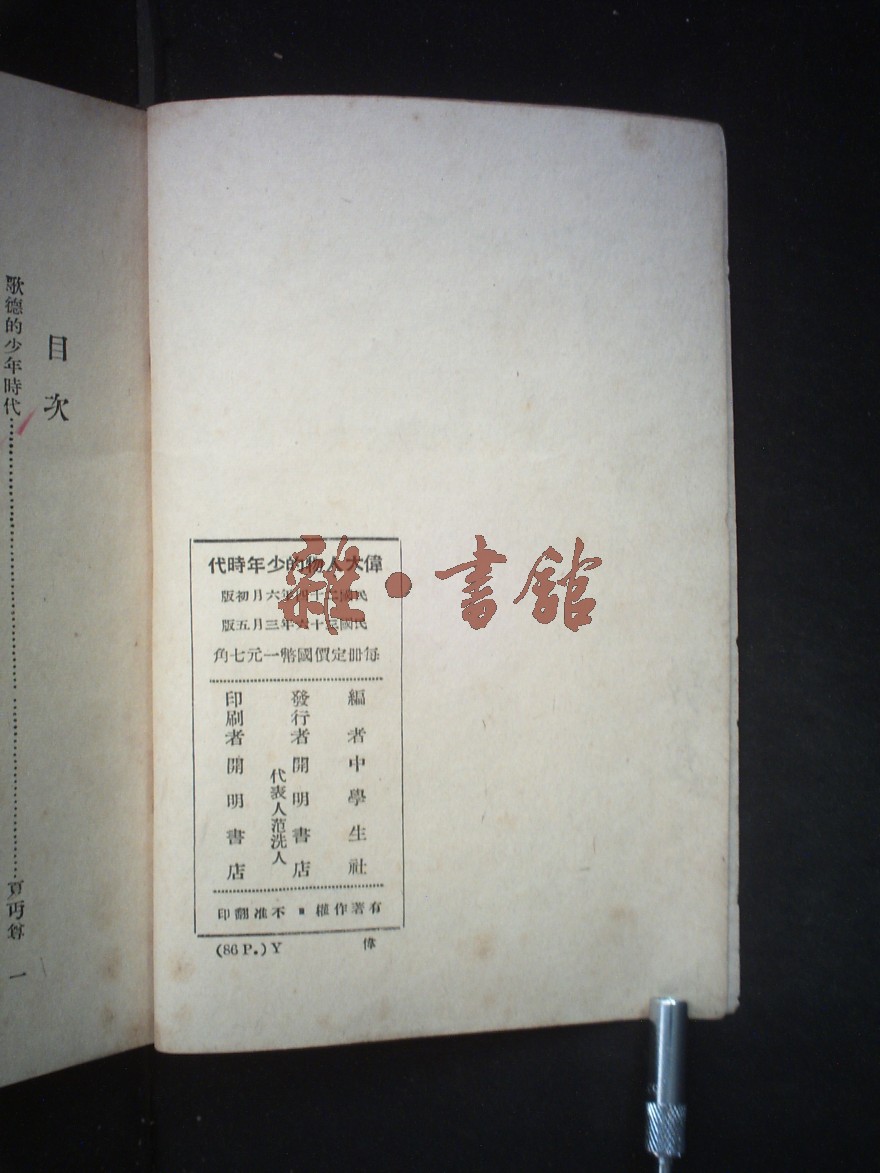 偉大人物的少年時代
民國二十四年六月初版
民國三十六年三月五版
每冊定價國幣一元七角
編者 中學生社
發行者 開明書店
代表人范洗人
印刷者 開明書店
有著作權 不准翻印
(86 P.) Y
偉
目次
歌德的少年時代……夏丏尊 一
雜·書館